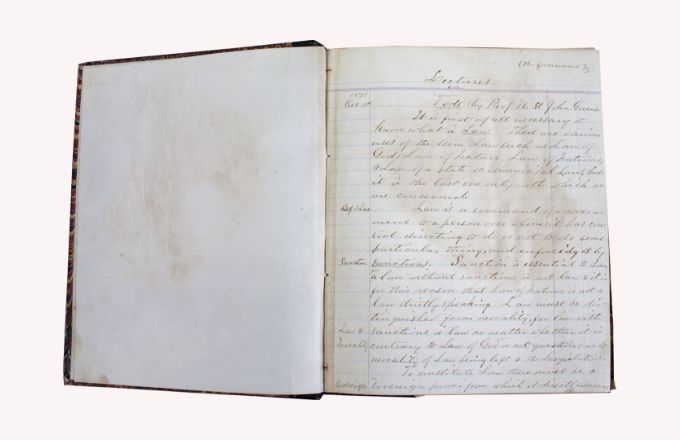 (the government by
Lectures
on
1875 Torts by Prof. N. St. John Green
Dec 10
It is first of all necessary to
know what is Law. There are various
uses of the term Law such as Law of
God, Law of Nature Law of Nations,
& Law of a state or Municipal Law, but
it is the last one only with which we
are concerned.
Law is a command of a govern
ment to a person over whom it has con
trol, directing to do or not to do some
particular thing, and enforcing it by
Sanction sanctions. Sanction is essential to Law
a law without sanctions is not law & it is
for this reason that Law of Nations is not a
law strictly speaking. Law must be dis-
tinguished from morality, for law with
Law & sanctions is law no matter whether it is
Morality contrary to Law of God or not questions of
morality of Law being left to the Legislature.
To constitute Law there must be a
Sovereign sovereign power from which it directly